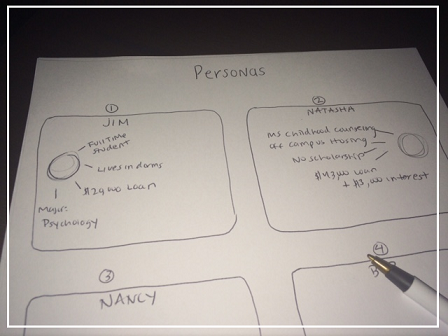 Personas
①
JIM
Full Time
student
Lives in dorms
Loan
Major:
Psychology
②
NATASHA
MS childhood counseling
off campus Housing
No scholarship
Loan
interest
③
NANCY
④